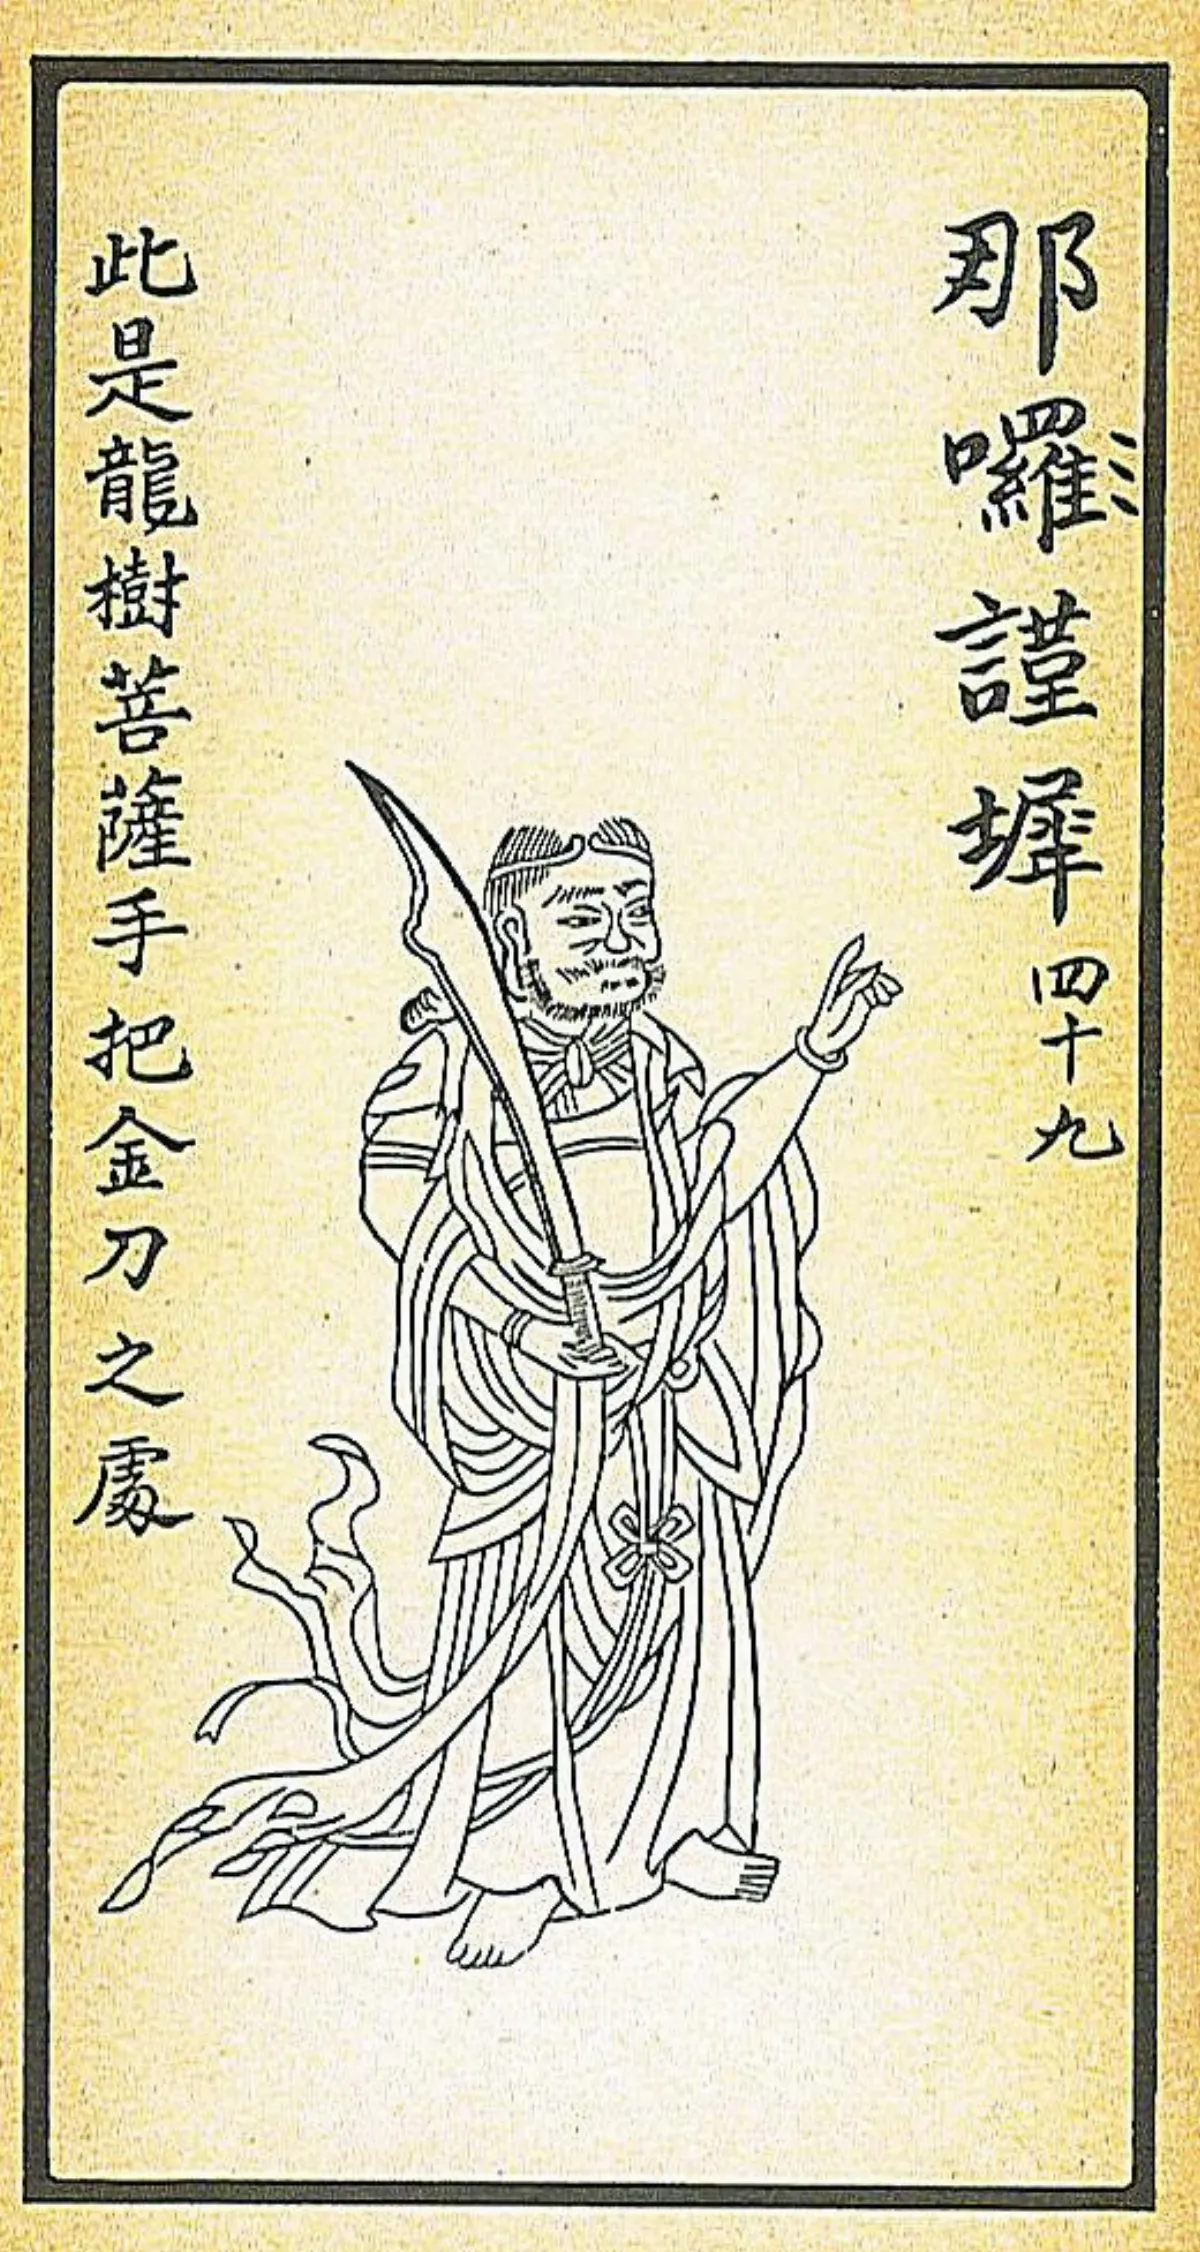 那囉謹墀四十九
此是龍樹菩薩手把金刀之處